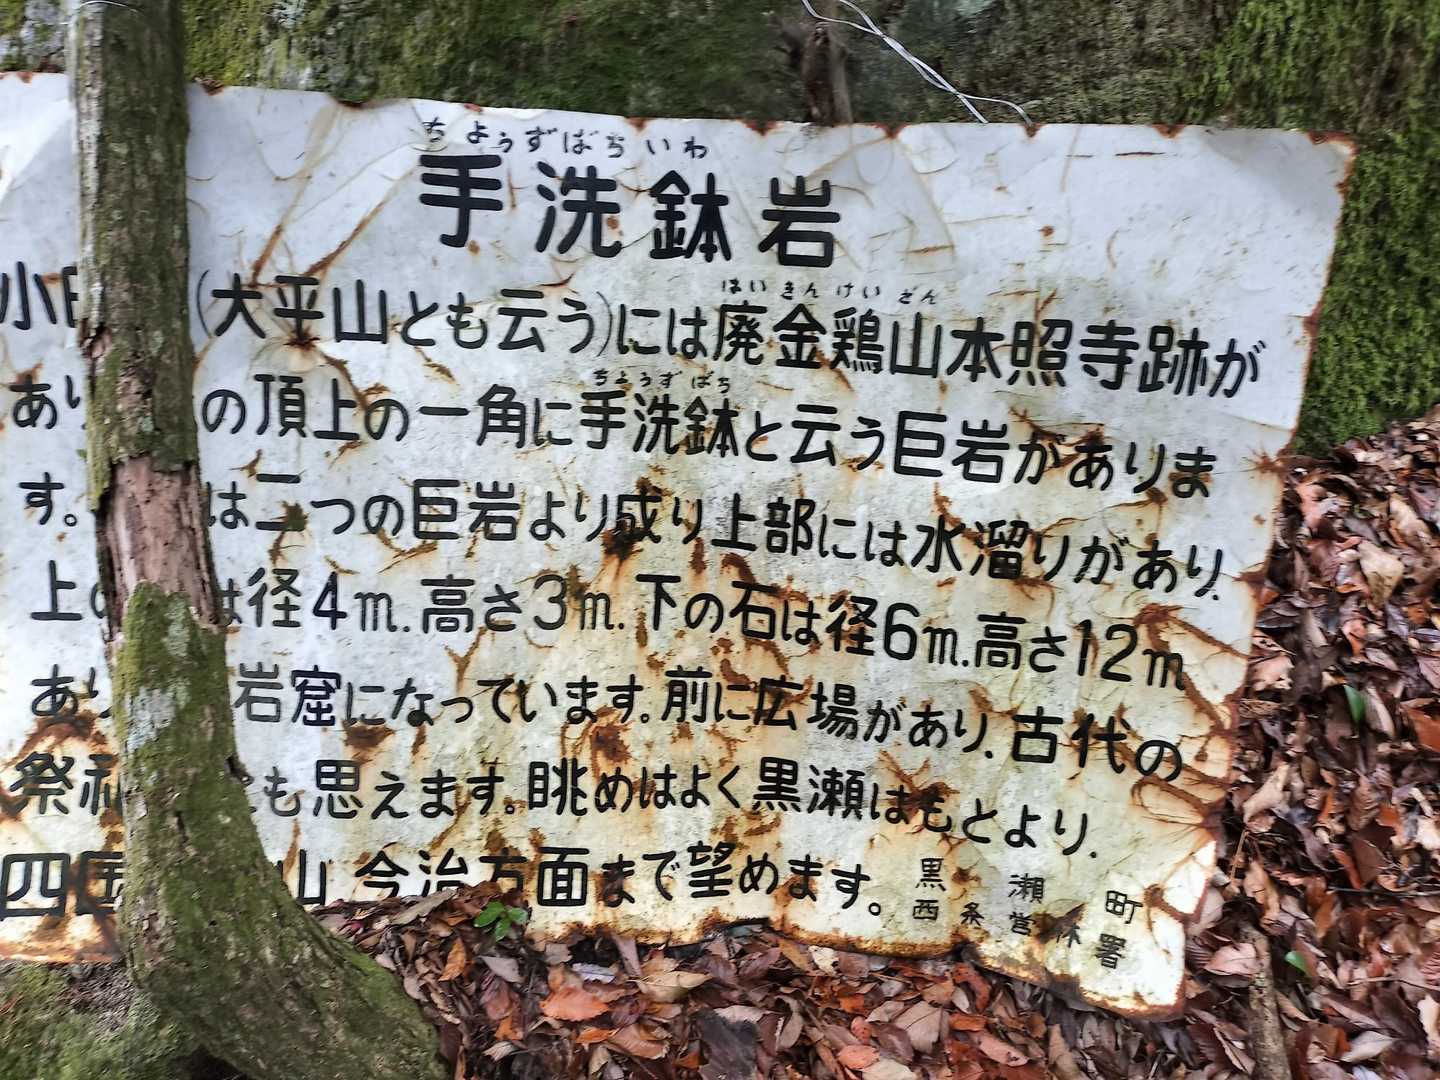 ちようずばちいわ
手洗鉢岩
小 (大平山とも云う)には廃金鶏山本照寺跡が
はいきんけいざん
あり の頂上の一角に手洗鉢と云う巨岩がありま
ちようずばち
す。 は二つの巨岩より成り上部には水溜りがあり.
上の は径4m.高さ3m.下の石は径6m.高さ12m
あり 岩窟になっています。前に広場があり.古代の
祭祀 も思えます。眺めはよく黒瀬はもとより.
四国 山 今治方面まで望めます。
黒瀬町
西条営林署